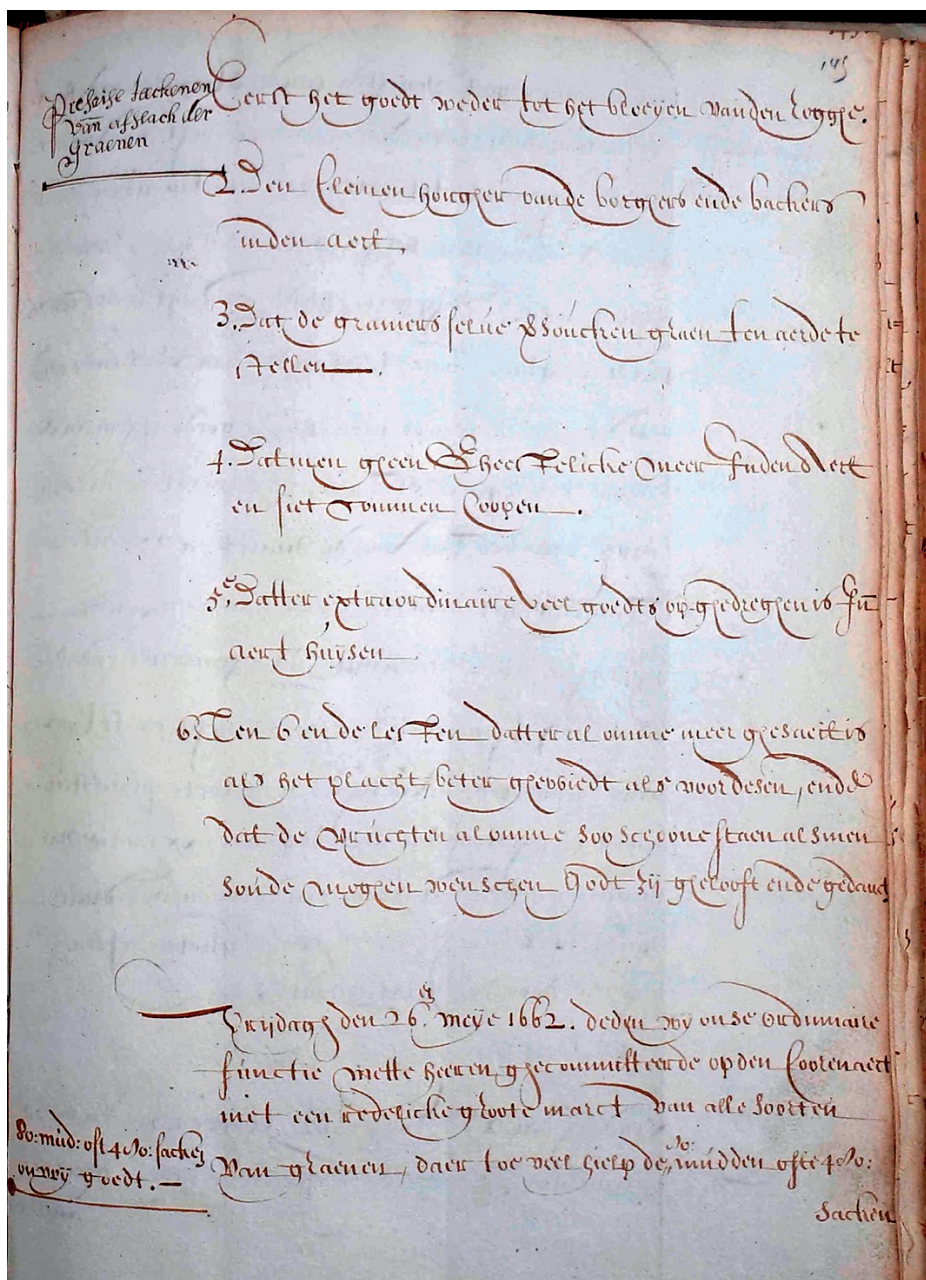 145
Presise taeckenen
van afslach der
graenen
Eerst het goedt weder tot het bloeyen vanden Rogghe.
2. Den kleinen honger vande borghers ende backers
inden aert.
3. Dat de gramers selve versoucken graen ten aerde te
stellen.
4. Datmen gheen gheestelicke meer Inden Aert
en siet commen Coopen.
5.e Datter extraordinaire veel goedts op ghedreghen is In
aert huysen
6. Ten 6 en de lesten datter al omme meer ghesaeit is
als het placht, beter ghewiedt als voor desen, ende
dat de vruchten al omme soo schoone staen alsmen
soude moghen wenschen Godt zij ghelooft ende gedanct
Vrijdagh den 26.en meye 1662. deden wy onse ordinaire
functie mette heeren ghecommitteerde op den Coorenaert
met een redelicke groote marct van alle soorten
80: mud: oft 480: sacken
onvrij goedt.
Van graenen, daer toe veel hielp de 80: mudden ofte 480:
sacken